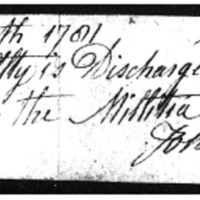 th 1781
lly is Discharge
the Millitia
Joh